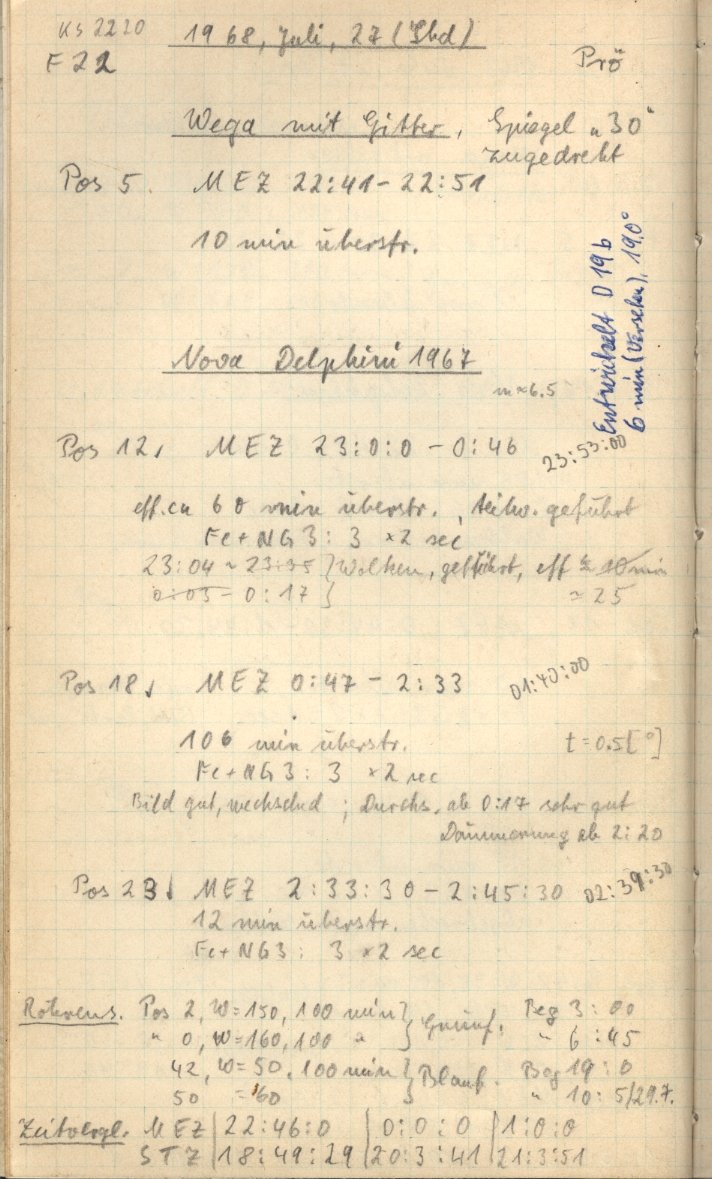 KS 2220 1968, Juli, 27 (Sbd)
F 22 Prö
Wega mit Gitter, Spiegel „30“
zugedreht
Pos 5. MEZ 22:41-22:51
10 min überstr.
Entwickelt D 19 b
6 min (Versehen), 19.0°
Nova Delphini 1967
m≈6.5
Pos 12, MEZ 23:0:0 - 0:46 23:53:00
eff. ca 60 min überstr., teilw. geführt
Fe+NG3: 3 × 2 sec
23:04 ~ 23:35 } Wolken, geführt, eff ≈ 10 min
0:05 - 0:17 } ≈ 25
Pos 18, MEZ 0:47 - 2:33 01:40:00
106 min überstr. t=0.5[°]
Fe+NG3: 3 × 2 sec
Bild gut, wechselnd; Durchs. ab 0:17 sehr gut
Dämmerung ab 2:20
Pos 23, MEZ 2:33:30 - 2:45:30 02:39:30
12 min überstr.
Fe+NG3: 3 × 2 sec
Röhrens. Pos 2, W=150, 100 min } Grünf. Beg 3:00
" 0, W=160, 100 " } " 6:45
42, W=50, 100 min } Blauf. Beg 19:0
50 =60 } " 10:5/29.7.
Zeitvergl. MEZ | 22:46:0 | 0:0:0 | 1:0:0
STZ | 18:49:29 | 20:3:41 | 21:3:51